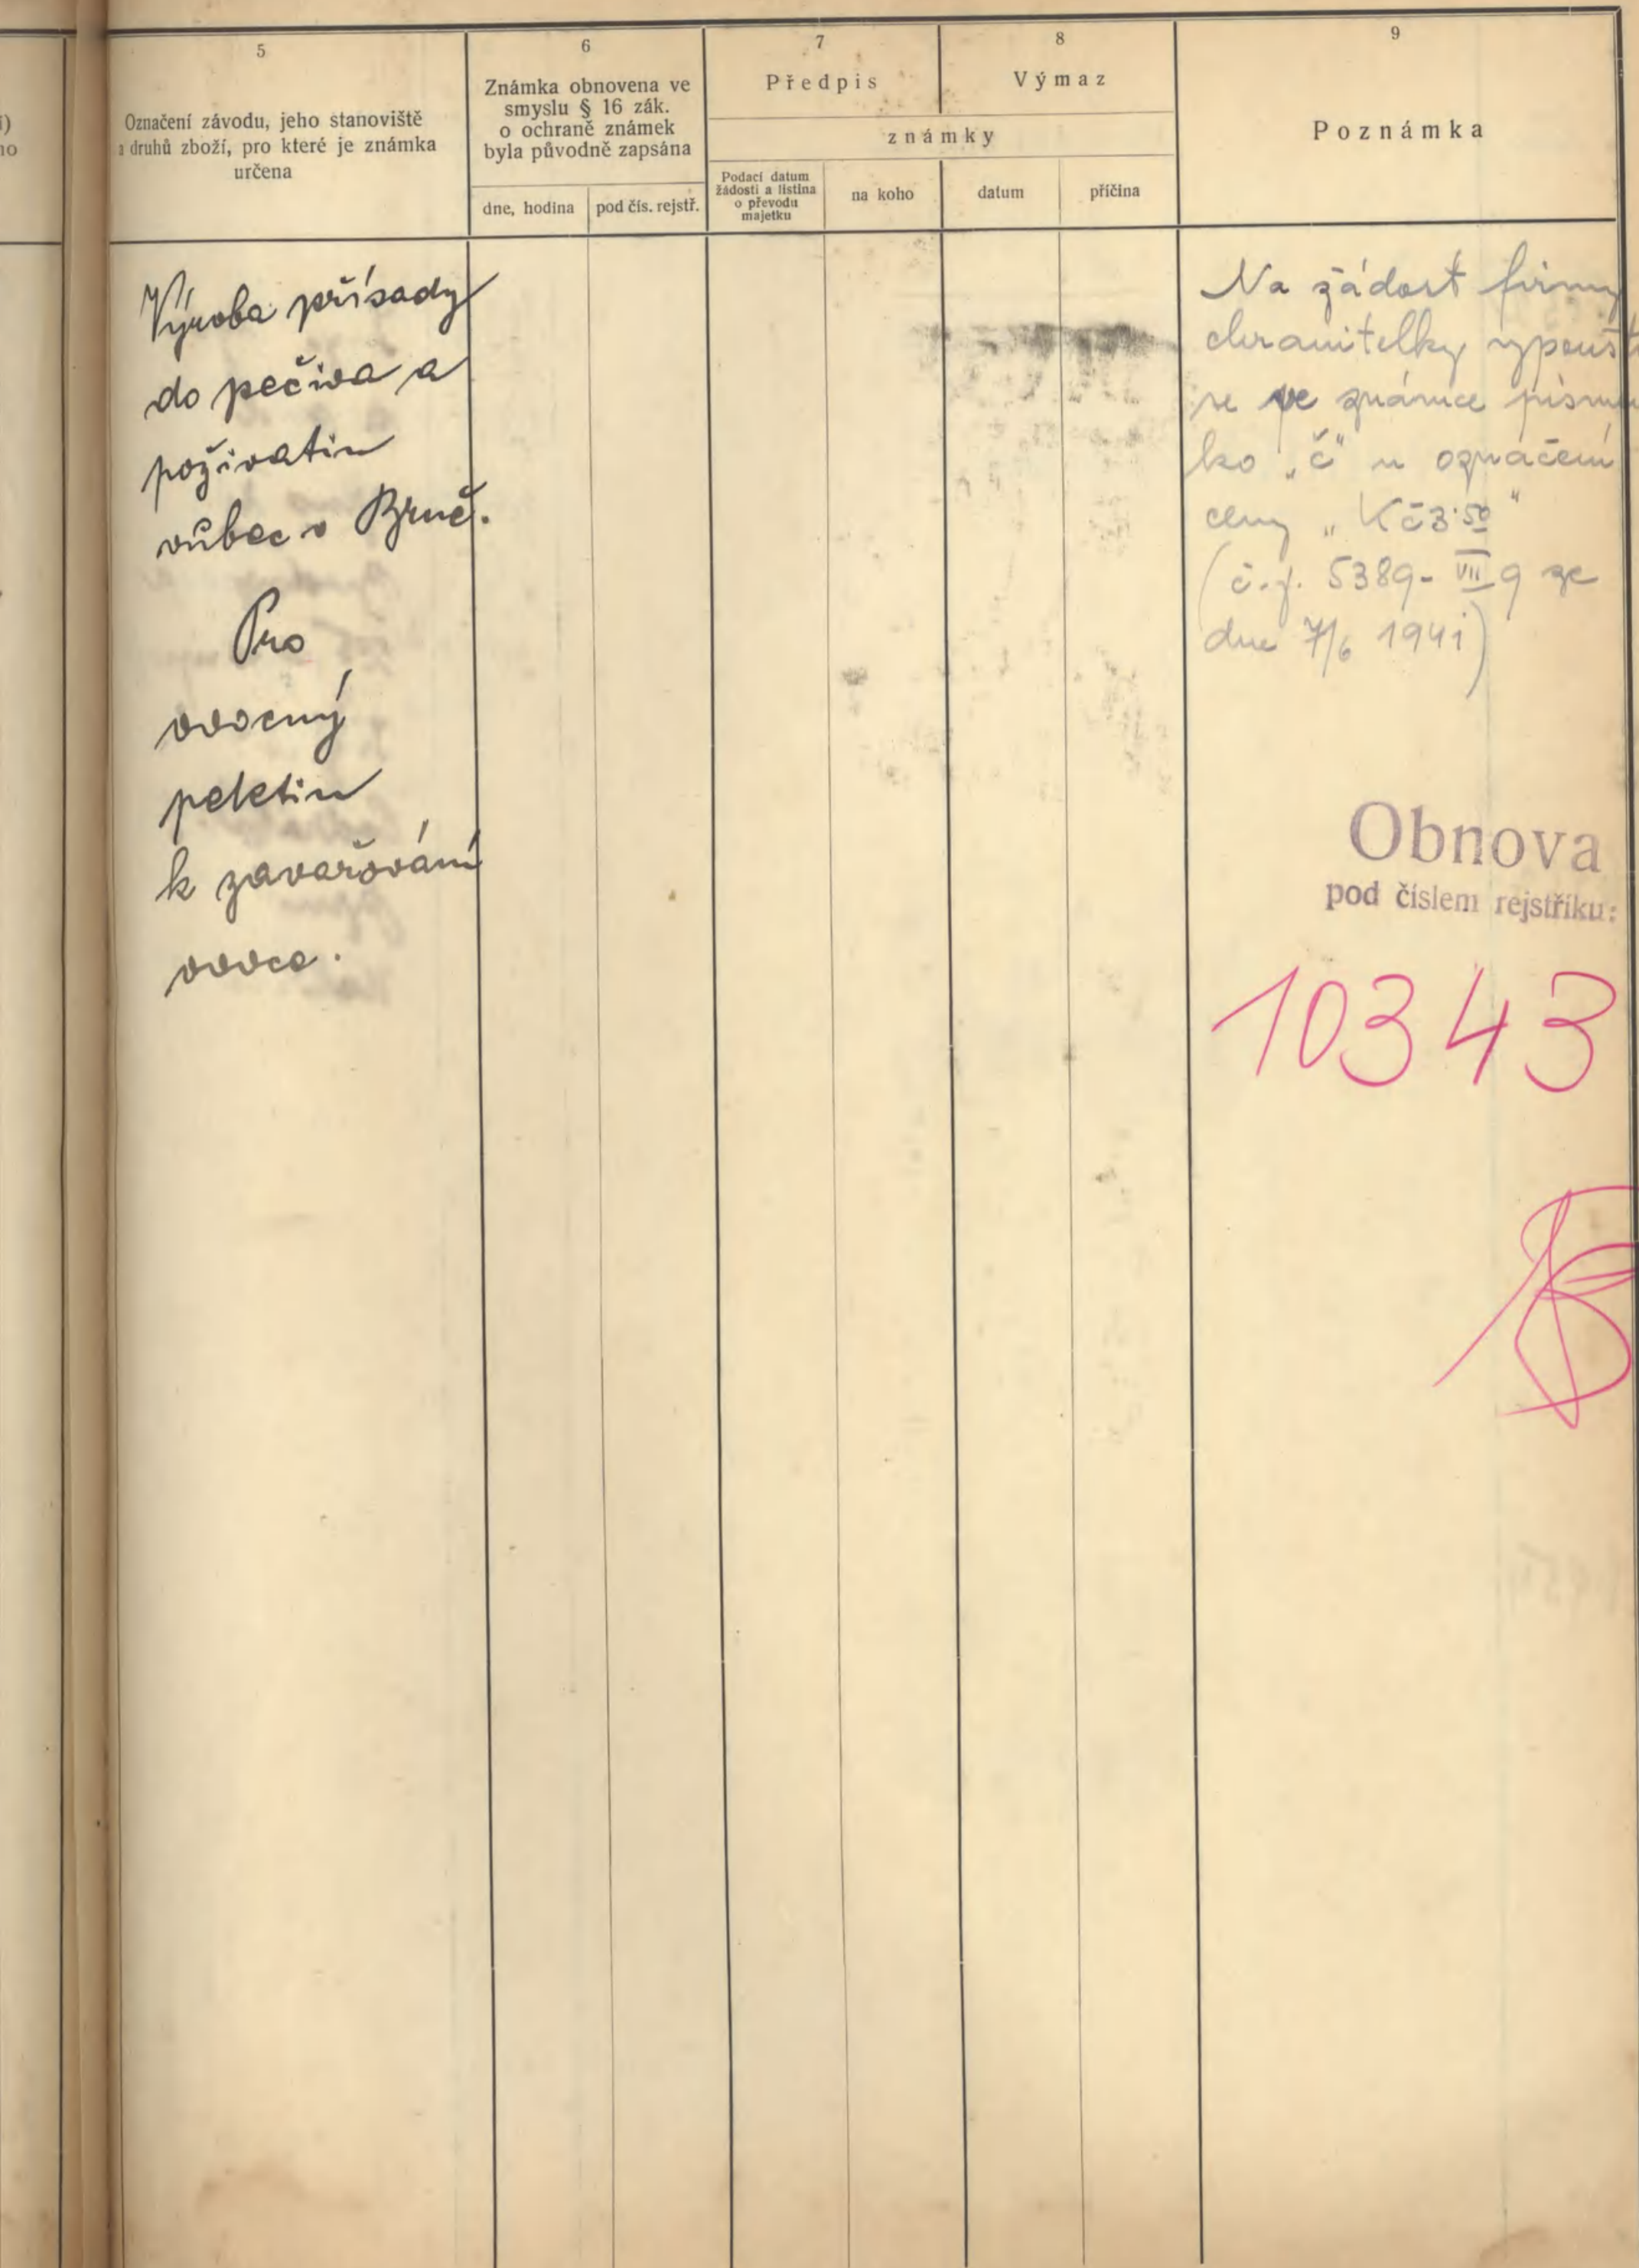 5
Označení závodu, jeho stanoviště
a druhů zboží, pro které je známka
určena
6
Známka obnovena ve
smyslu § 16 zák.
o ochraně známek
byla původně zapsána
dne, hodina
pod čís. rejstř.
7
Předpis
8
Výmaz
známky
Podací datum
žádosti a listina
o převodu
majetku
na koho
datum
příčina
9
Poznámka
Výroba přísady
do pečiva a
poživatin
vůbec v Brně.
Pro
ovocný
pektin
k zavařování
ovoce.
Na žádost firmy
chranitelky vypouští
se ve známce písmen
ko „č" u označení
ceny „Kč 3·50"
(č.j. 5389-VII 9 ze
dne 7/6 1941)
Obnova
pod číslem rejstříku:
10343